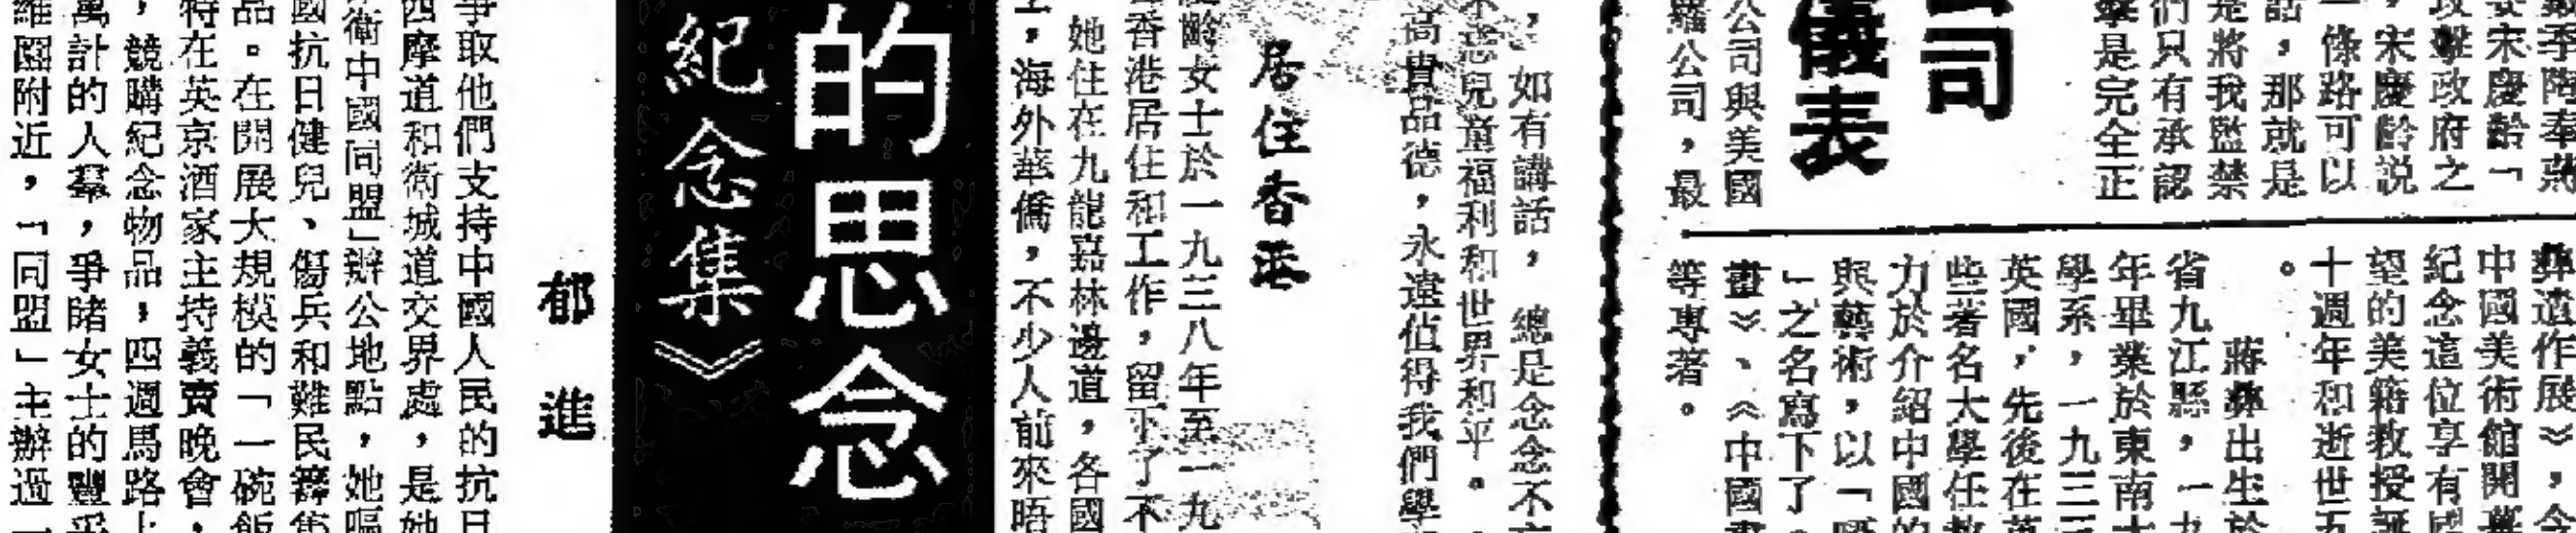 要宋慶齡「
攻擊政府之
，宋慶齡説
一條路可以
話，那就是
是將我監禁
們只有承認
擊是完全正
公司
儀表
公司與美國
羅公司，最
彝遺作展》，今
中國美術館開幕
紀念這位享有國
望的美籍教授誕
十週年和逝世五
。
蔣彝出生於
省九江縣，一九
年畢業於東南大
學系，一九三三
英國，先後在英
些著名大學任教
力於介紹中國的
與藝術，以「啞
」之名寫下了
畫》、《中國畫
等專著。
，如有講話，總是念念不忘
兒童福利和世界和平。
高貴品德，永遠值得我們學
居住香港
慶齡女士於一九三八年至一九
香港居住和工作，留下了不
她住在九龍嘉林邊道，各國
，海外華僑，不少人前來晤
的思念
紀念集》
郁進
爭取他們支持中國人民的抗日
西摩道和衛城道交界處，是她
衛中國同盟」辦公地點，她嘔
國抗日健兒、傷兵和難民籌集
品。在開展大規模的「一碗飯
特在英京酒家主持義賣晚會，
，競購紀念物品，四週馬路上
萬計的人羣，爭睹女士的豐采
維園附近，「同盟」主辦過一